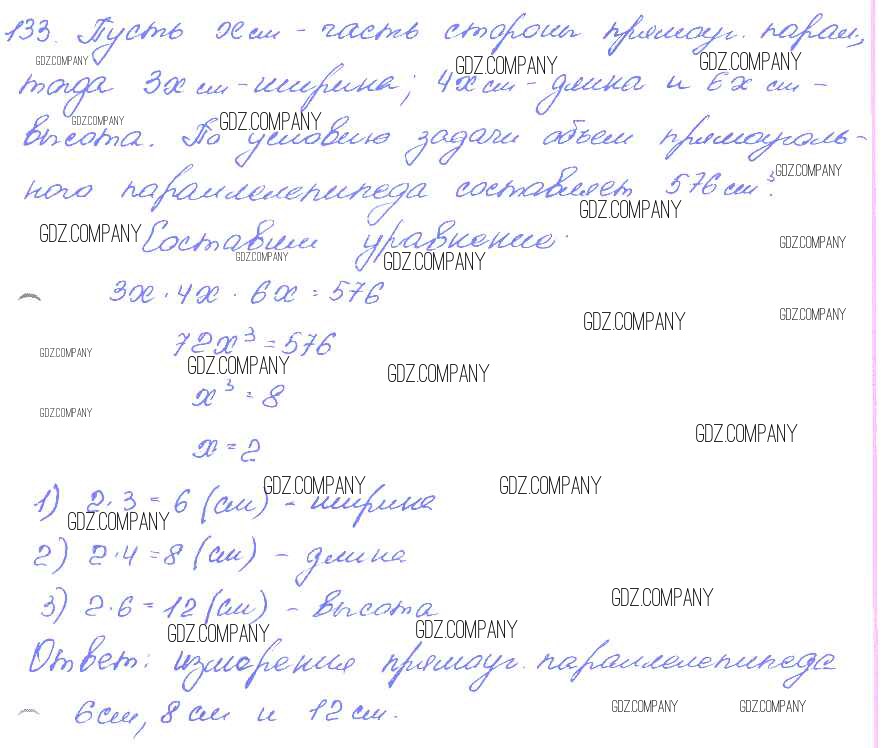 133. Пусть x см - часть стороны прямоуг. парал,
GDZ.COMPANY GDZ.COMPANY GDZ.COMPANY
тогда 3x см - ширина; 4x см - длина и 6x см -
GDZ.COMPANY GDZ.COMPANY
высота. По условию задачи объем прямоуголь-
GDZ.COMPANY
ного параллелепипеда составляет 576 см³.
GDZ.COMPANY
GDZ.COMPANY Составим уравнение: GDZ.COMPANY
GDZ.COMPANY GDZ.COMPANY
3x · 4x · 6x = 576
GDZ.COMPANY GDZ.COMPANY
72x³ = 576
GDZ.COMPANY
GDZ.COMPANY GDZ.COMPANY
x³ = 8
GDZ.COMPANY
GDZ.COMPANY
x = 2
GDZ.COMPANY GDZ.COMPANY
1) 2 · 3 = 6 (см) - ширина
GDZ.COMPANY
2) 2 · 4 = 8 (см) - длина
GDZ.COMPANY
3) 2 · 6 = 12 (см) - высота
GDZ.COMPANY GDZ.COMPANY
Ответ: измерения прямоуг. параллелепипеда
6 см, 8 см и 12 см.
GDZ.COMPANY GDZ.COMPANY